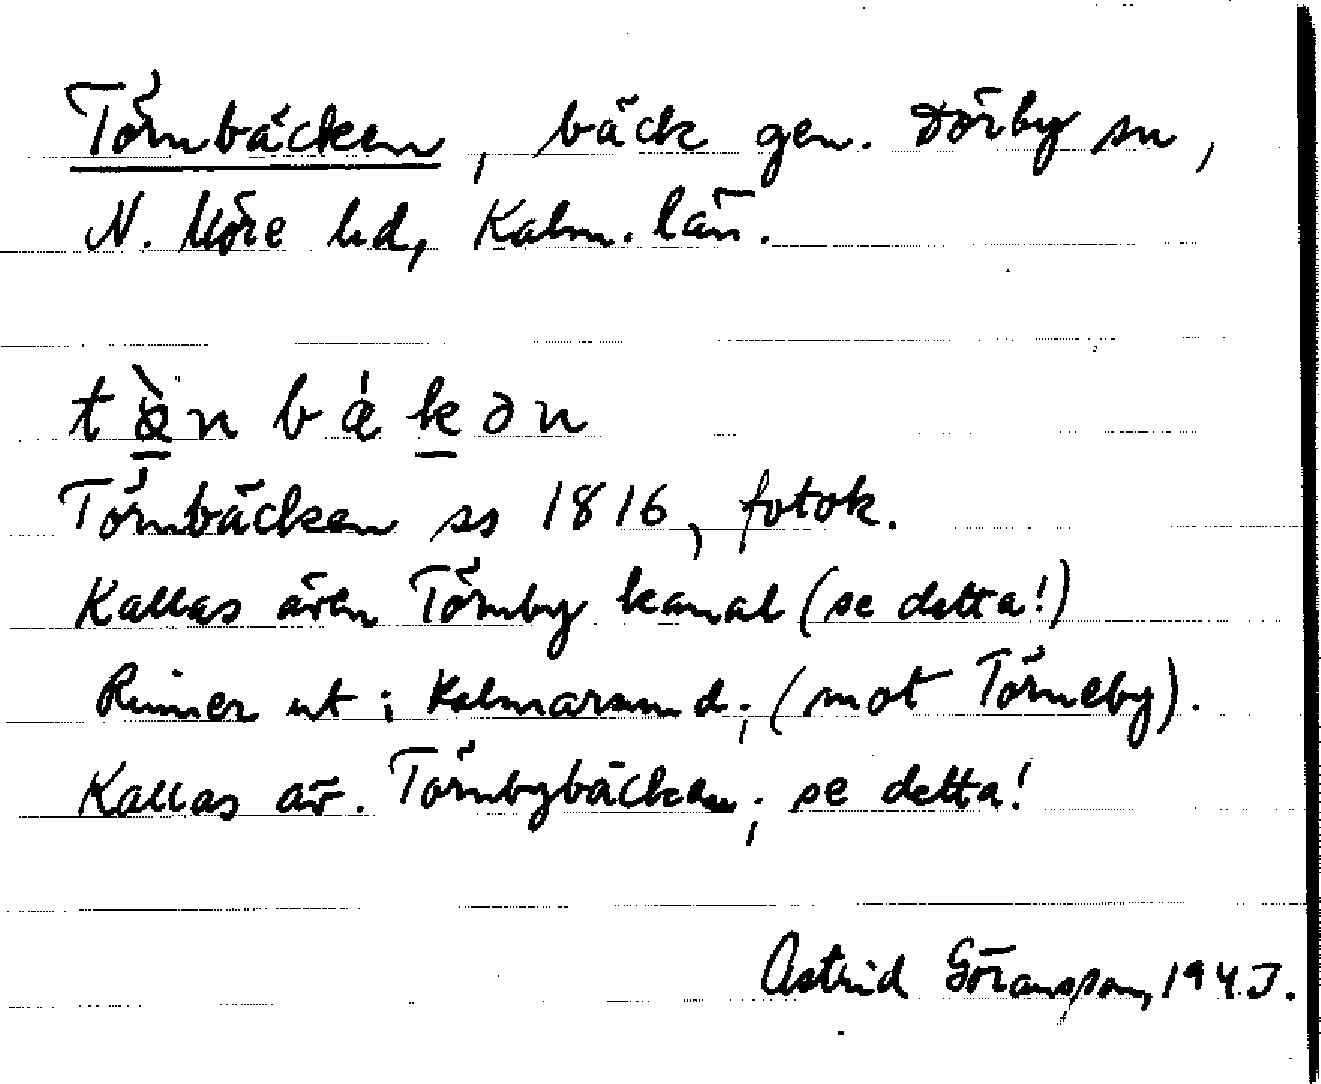 Törnbäcken, bäck gen. Dörby sn,
N. Möre hd, Kalm. län.
Törnbäcken ss 1816, fotok.
Kallas även Törnby kanal (se detta!)
Rinner ut i Kalmarsund; (mot Törneby).
Kallas äv. Törnbybäcken; se detta!
Astrid Göransson,